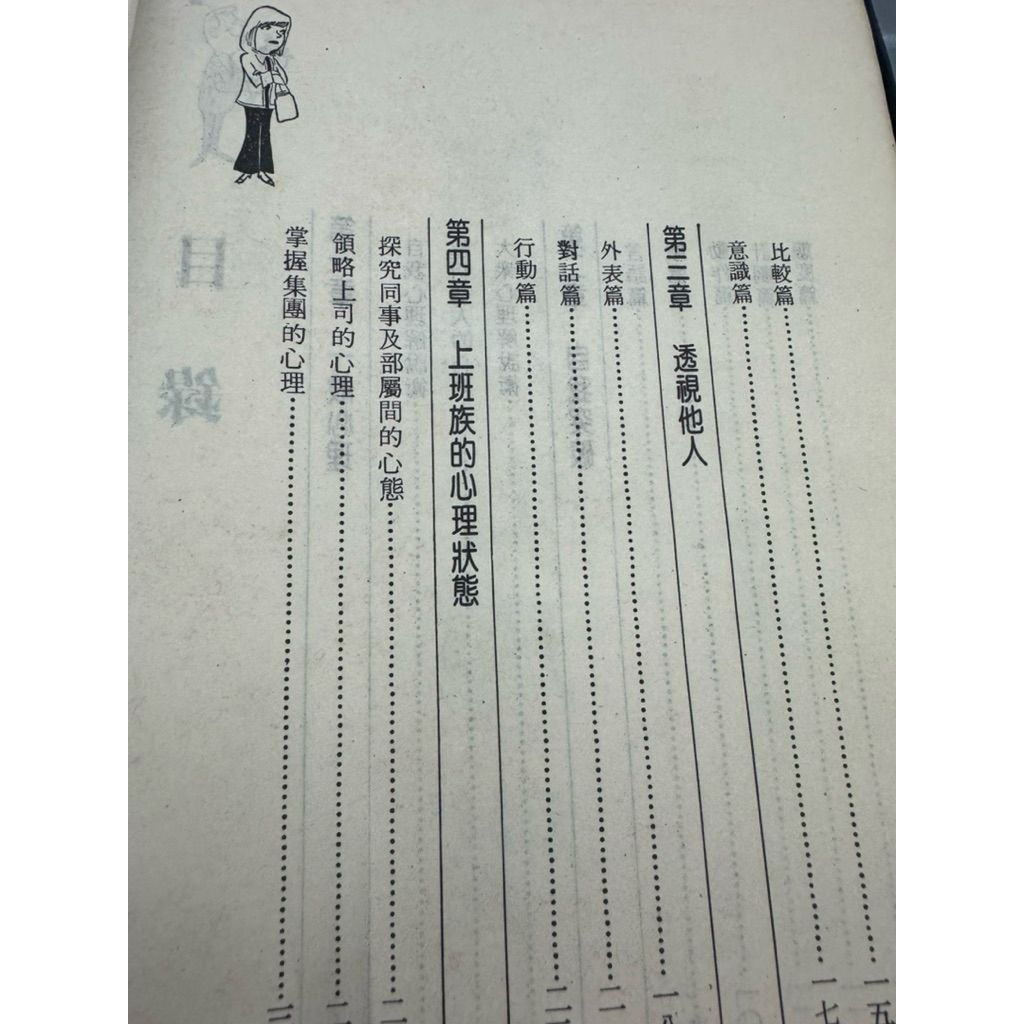 比較篇……一五
意識篇……一七
第三章　透視他人
外表篇……一八
對話篇……二一
行動篇……二一
第四章　上班族的心理狀態
探究同事及部屬間的心態……二
領略上司的心理……二
掌握集團的心理……二
目錄